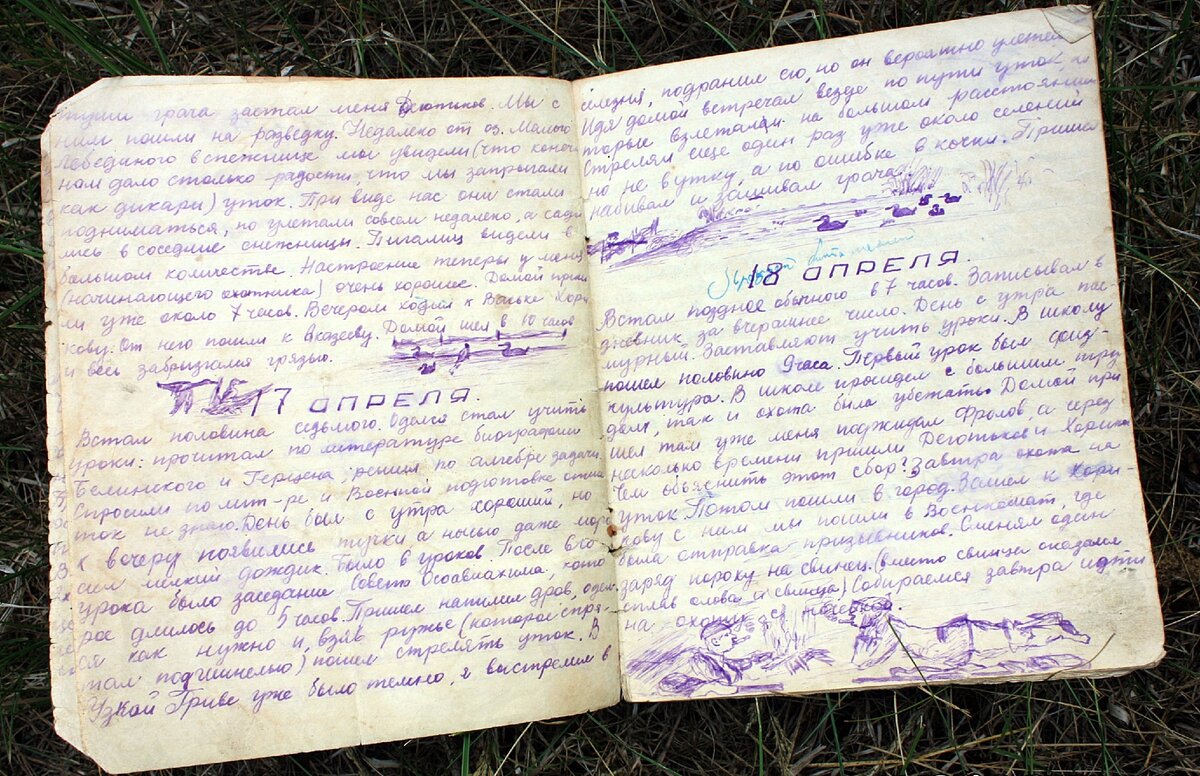 грача застал меня Деготьков. Мы с
ним пошли на разведку. Недалеко от оз. Малого
Лебединого в снежнице мы увидели (что конеч-
ном дало столько радости что мы запрыгали
как дикари) уток. При виде нас они стали
подниматься, но улетали совсем недалеко, а сади
лись в соседние снежницы. Пигалиц видели в
большом количестве. Настроение теперь у меня
(начинающего охотника) очень хорошее. Домой приш
ли уже около 7 часов. Вечером ходил к Ваське Хори
кову. От него пошли к Авдееву. Домой шел в 10 часов
и весь забрызгался грязью.
17 АПРЕЛЯ.
Встал половина седьмого. Оделся стал учить
уроки: прочитал по литературе биографии
Белинского и Герцена, решил по алгебре задачи.
Спросили по лит-ре и Военной подготовке отме
ток не знаю. День был с утра хороший, но
к вечеру появились тучки а ночью даже моро
сил мелкий дождик. Было 6 уроков. После 6го
урока было заседание Совета Осоавиахима, кото
рое длилось до 5 часов. Пришел напилил дров, одел
ся как нужно и, взяв ружье (которое спря
тал под шинелью) пошел стрелять уток. В
Узкой Гриве уже было темно, я выстрелил в
селезня, подранил его, но он вероятно улетел
Идя домой встречал везде по пути уток ко
торые взлетали на большом расстоянии
Стрелял еще один раз уже около селений
но не в утку а по ошибке в кочки. Пришел
набивал и зашивал грача.
18 АПРЕЛЯ.
Встал позднее обычного в 7 часов. Записывал в
дневник за вчерашнее число. День с утра пас
мурный. Заставляют учить уроки. В школу
пошел половина 9 часа. Первый урок был физ-
культура. В школе просидел с большим тру
дом, так и охота была убежать. Домой при
шел там уже меня поджидал Фролов, а через
несколько времени пришли Деготьков и Хориков
Чем объяснить этот сбор? Завтра охота на
уток. Потом пошли в город. Зашел к Хори-
кову с ним мы пошли в Военкомат, где
была отправка призывников. Сменял один
заряд пороху на свинец. (вместо свинца оказался
сплав олова и свинца) Собираемся завтра идти
на охоту с ночевкой.